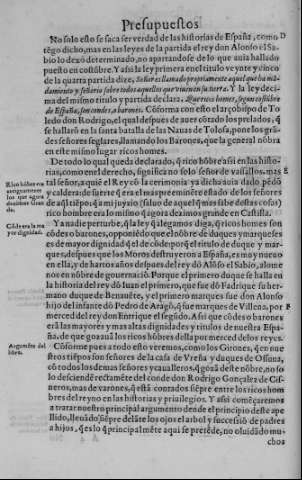 Presupuestos
No solo esto se saca ser verdad de las historias de España, como D
tẽgo dicho, mas en las leyes de la partida el rey don Alonso el Sa-
bio lo dexó determinado, no apartandose de lo que auia hallado
puesto en costũbre. Y assi la ley primera en el titulo veynte y cinco
de la quarta partida dize, Señor es llamado propriamente aquel que ha mã-
damiento y señorio sobre todos aquellos que viuen en su tierra. Y la ley deci-
ma del mismo titulo y partida declara. Que rico home, segun costũbre
de España, son condes, o barones. Cõforma con esto el arçobispo de To-
ledo don Rodrigo, el qual despues de auer cõtado los prelados, q̃
se hallarõ en la santa batalla de las Nauas de Tolosa, pone los grã-
des señores seglares, llamando los Barones, que la general nõbra
en este mismo lugar ricos homes.
De todo lo qual queda declarado, q̃ rico hõbre assi en las histo-
rias, como en el derecho, significa no solo señor de vassallos, mas E
tal señor, a quiẽ el Rey cõ la cerimonia ya dicha auia dado pẽdõ
Rico hõbre era
antiguamente
los que agora
dezimos Gran-
de.
y caldera de suerte q̃ era el mas preeminẽte estado de los señores
de aq̃l tiẽpo: q̃ a mi juyzio (saluo de aquel q̃ mas sabe destas cosas)
rico hombre era lo mismo q̃ agora dezimos grande en Castilla.
Cõde era la ma
yor dignidad.
Y a nadie perturbe, q̃ la ley q̃ alegamos diga, q̃ ricos homes son
cõdes o barones, oponiẽdo que el nõbre de duques y marqueses
es de mayor dignidad q̃ el de cõde: porq̃ el titulo de duque y mar-
ques, despues que los Moros destruyerõ a España, es muy nueuo
en ella, y de hartos años despues del rey dõ Alõso el Sabio, alome
nos en nõbre de gouernaciõ. Porque el primero duque se halla en
la historia del rey dõ Iuan el primero, que fue dõ Fadrique su her-
mano duque de Benauẽte, y el primero marques fue don Alonso
hijo del infante dõ Pedro de Aragõ, q̃ fue marques de Villena, por F
merced del rey don Enrique el segũdo. Assi que cõdes o barones
erã las mayores y mas altas dignidades y titulos de nuestra Espa-
ña, de que gozauã los ricos hõbres della por merced de los reyes.
Argumẽto del
libro.
Cõforme pues a todo esto veremos, como los Girones, q̃ en nue
stros tiẽpos son señores de la casa de Vreña y duques de Ossuna,
cõ todos los demas señores y caualleros, q̃ gozã deste nõbre, no so
lo desciẽdẽ rectamẽte del conde don Rodrigo Gonçalez de Cis-
neros, mas de varones, q̃ estã contados siẽpre entre los ricos hom
bres del reyno en las historias y priuilegios. Y assi començaremos
a tratar nuestro principal argumento desde el principio deste ape
llido, lleuãdo siẽpre delãte los ojos el arbol y successiõ de padres
a hijos, q̃ es lo q̃ principalmẽte aqui se pretẽde, no oluidãdo mu-
chos